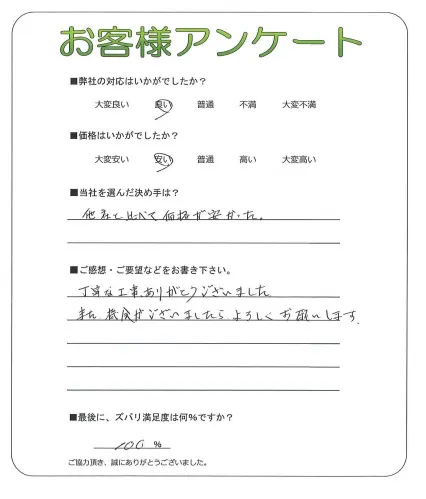 お客様アンケート
■弊社の対応はいかがでしたか？
大変良い 良い 普通 不満 大変不満
■価格はいかがでしたか？
大変安い 安い 普通 高い 大変高い
■当社を選んだ決め手は？
他社と比べて価格が安かった。
■ご感想・ご要望などをお書き下さい。
丁寧な工事、ありがとうございました
また機会がございましたらよろしくお願いします。
■最後に、ズバリ満足度は何%ですか？
100 %
ご協力頂き、誠にありがとうございました。